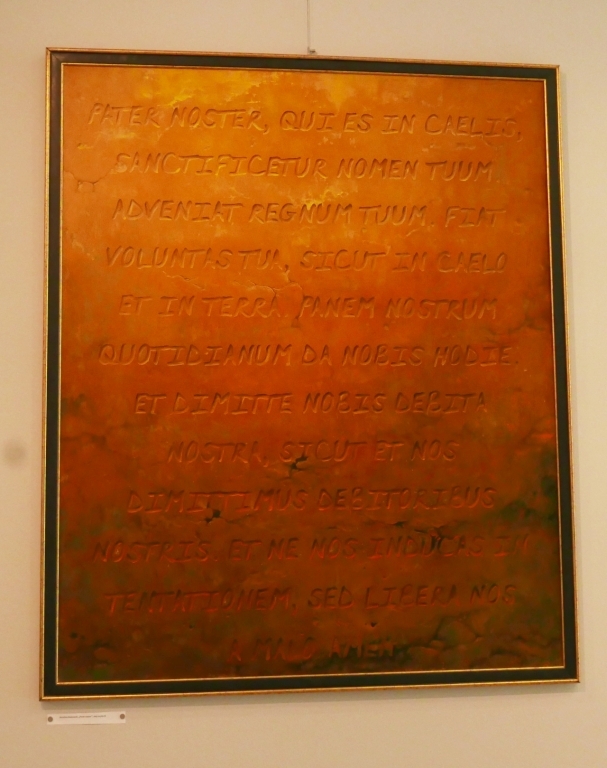 PATER NOSTER, QUI ES IN CAELIS,
SANCTIFICETUR NOMEN TUUM.
ADVENIAT REGNUM TUUM. FIAT
VOLUNTAS TUA, SICUT IN CAELO
ET IN TERRA. PANEM NOSTRUM
QUOTIDIANUM DA NOBIS HODIE.
ET DIMITTE NOBIS DEBITA
NOSTRA, SICUT ET NOS
DIMITTIMUS DEBITORIBUS
NOSTRIS. ET NE NOS INDUCAS IN
TENTATIONEM. SED LIBERA NOS
A MALO AMEN.